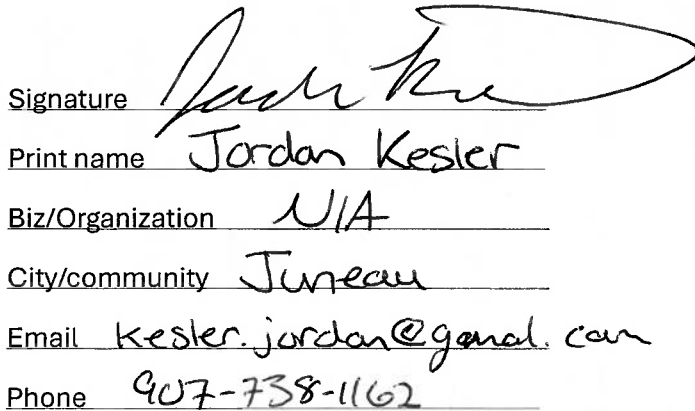 Signature
Print name Jordan Kesler
Biz/Organization N/A
City/community Juneau
Email kesler.jordan@gmail.com
Phone 907-738-1162